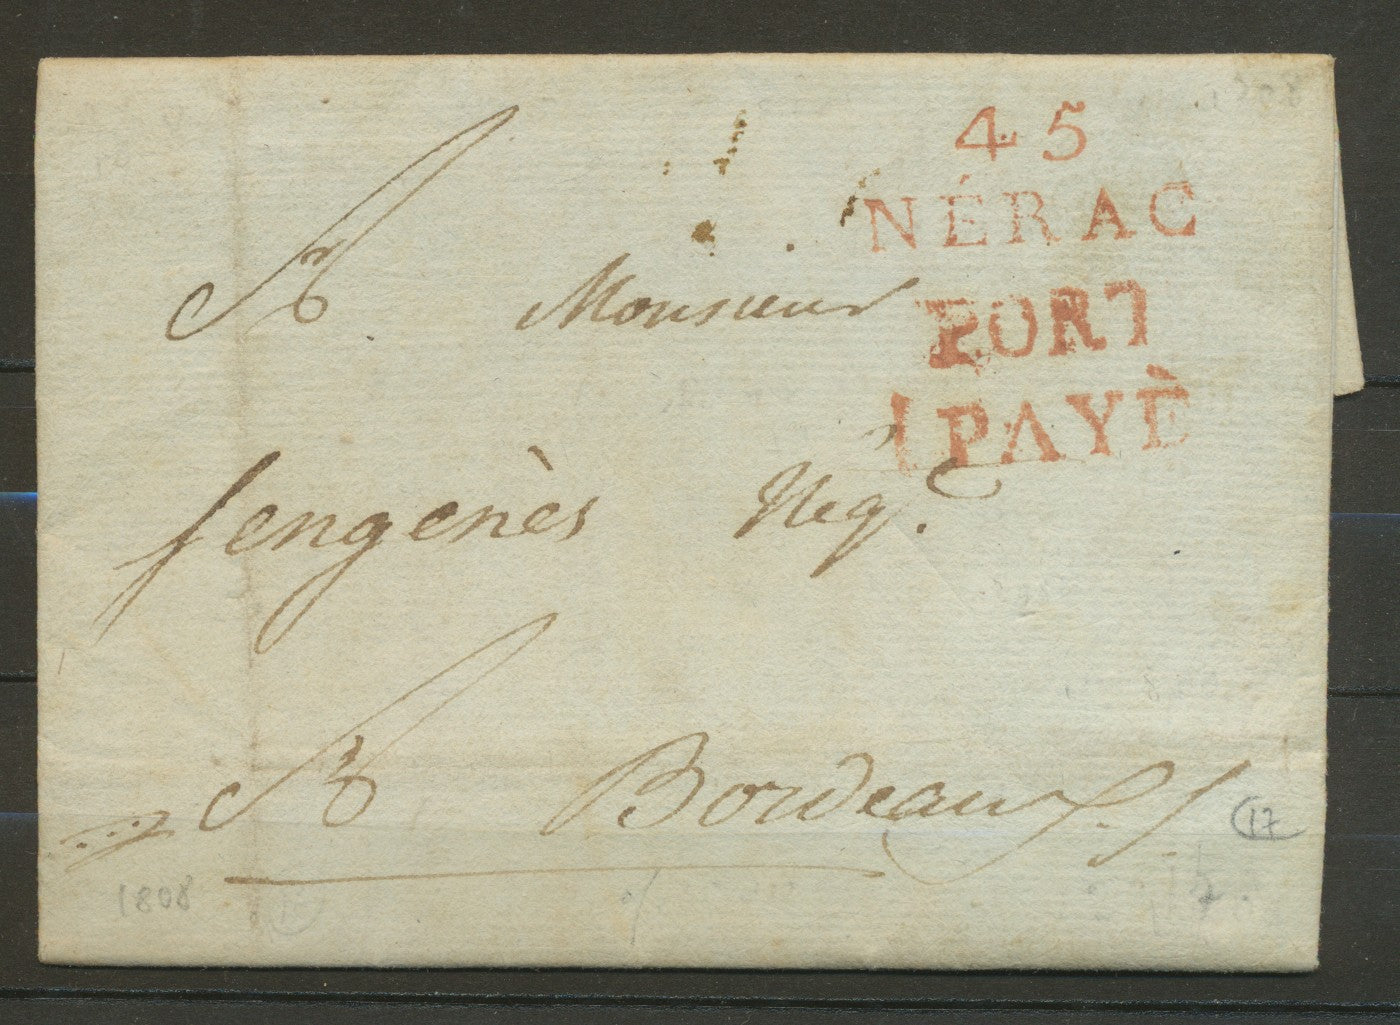 45
NÉRAC
PORT
PAYÈ
A Monsieur
fengenès Neg.t
A Bordeaux
1808
17